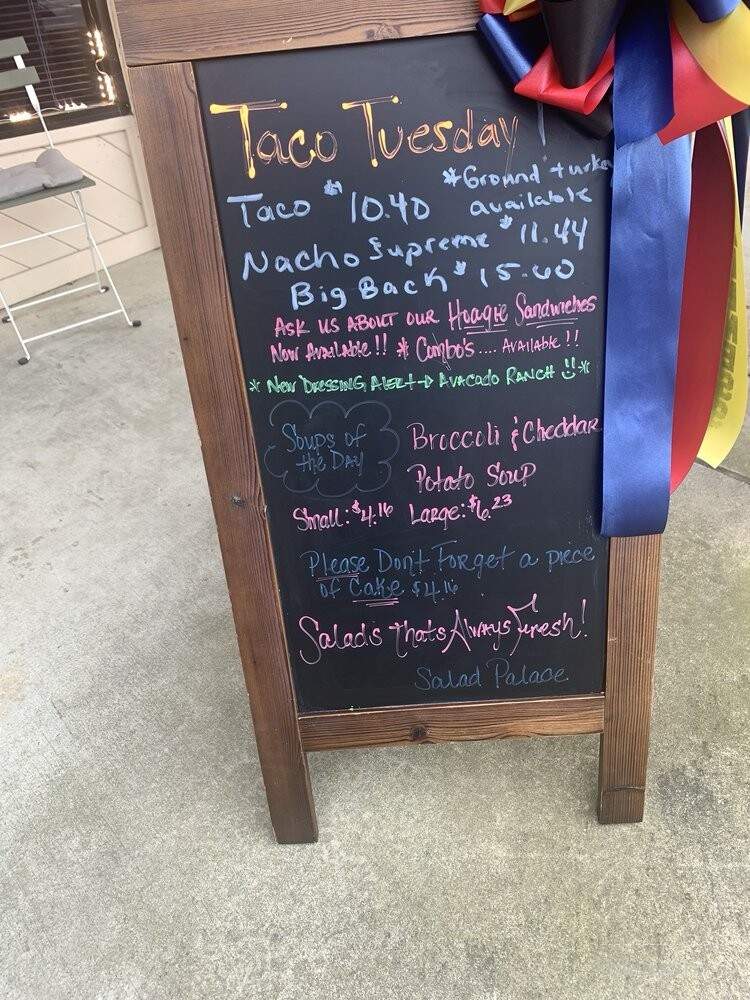 Taco Tuesday
Taco $10.40
*Ground turkey available
Nacho Supreme $11.44
Big Back $15.60
Ask us about our Hoagie Sandwiches
Now Available!! * Combo's.... Available!!
* New Dressing Alert → Avacado Ranch *
Soups of the Day
Broccoli & Cheddar
Potato Soup
Small: $4.16 Large: $6.23
Please Don't Forget a piece
of Cake $4.16
Salads Thats Always Fresh!
Salad Palace